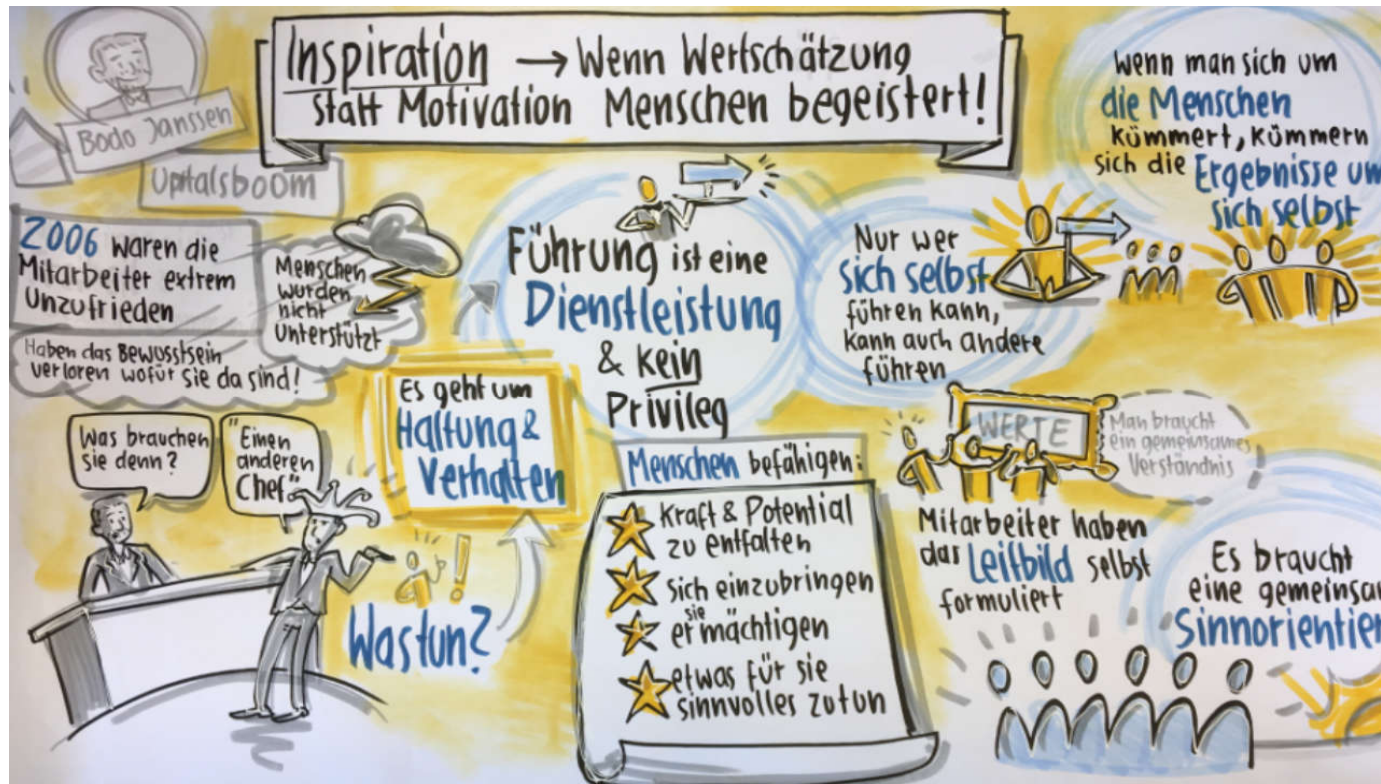 Inspiration → Wenn Wertschätzung
statt Motivation Menschen begeistert!
Bodo Janssen
Upstalsboom
2006 waren die
Mitarbeiter extrem
Unzufrieden
Menschen
wurden
nicht
Unterstützt
Haben das Bewusstsein
verloren wofür sie da sind!
Was brauchen
sie denn?
"Einen
anderen
Chef"
Was tun?
Es geht um
Haltung &
Verhalten
Führung ist eine
Dienstleistung
& kein
Privileg
Menschen befähigen:
Kraft & Potential
zu entfalten
sich einzubringen
sie
ermächtigen
etwas für sie
sinnvolles zutun
Nur wer
sich selbst
führen kann,
kann auch andere
führen
wenn man sich um
die Menschen
kümmert, kümmern
sich die Ergebnisse um
sich selbst
WERTE
Man braucht
ein gemeinsames
Verständnis
Mitarbeiter haben
das Leitbild selbst
formuliert
Es braucht
eine gemeinsa
Sinnorientier